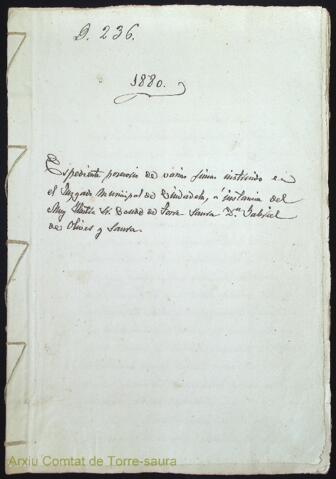 D. 236.
1880.
Espediente posesorio de varias fincas instruido en
el Juzgado Municipal de Ciudadela, á instancia del
Muy Iltre. Sr. Conde de Torre Saura Dn. Gabriel
de Olives y Saura.
Arxiu Comtat de Torre-saura